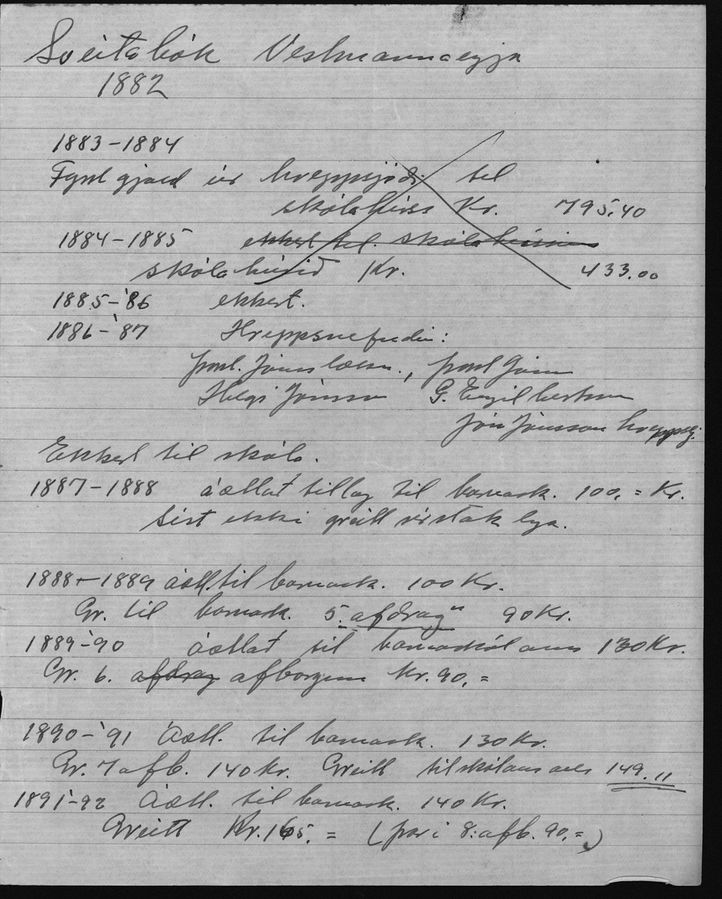 Sveitabók Vestmannaeyja
1882
1883-1884
gjald úr hreppsjóði til
skólahúss Kr. 795,40
1884-1885 ekkert til skólahússins
skólahúsið Kr. 433.00
1885-'86 ekkert.
1886-'87 Hreppsnefndin:
Þorst. Jónss. læknir, Þorst. Jónss
Helgi Jónsson G. Engilbertsson
Jón Jónsson hreppstj.
Ekkert til skóla.
1887-1888 áætlað tillag til barnask. 100,= Kr.
Sést ekki greitt
1888-1889 áætl. til barnask. 100 Kr.
Gr. til barnask. 5. afdrag" 90 Kr.
1889-'90 áætlað til barnaskólans 130 Kr.
Gr. 6. afdrag afborgun Kr. 90,=
1890-'91 Áætl. til barnask. 130 Kr.
Gr. 7 afb. 140 Kr. Greitt til skólans 149.11
1891-92 Áætl. til barnask. 140 Kr.
Greitt Kr. 165.= (þar í 8: afb. 90,=)